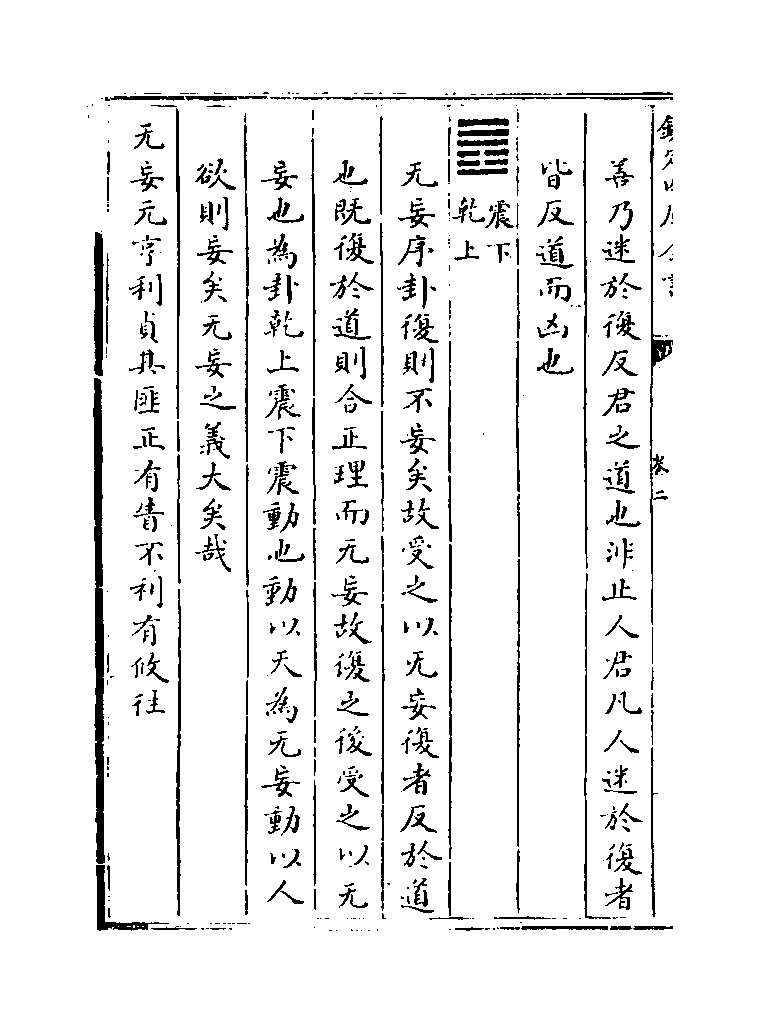 欽定四庫全書
卷二
善乃迷於復反君之道也非止人君凡人迷於復者
皆反道而凶也
䷘
震下
乾上
无妄序卦復則不妄矣故受之以无妄復者反於道
也既復於道則合正理而无妄故復之後受之以无
妄也為卦乾上震下震動也動以天為无妄動以人
欲則妄矣无妄之義大矣哉
无妄元亨利貞其匪正有眚不利有攸往